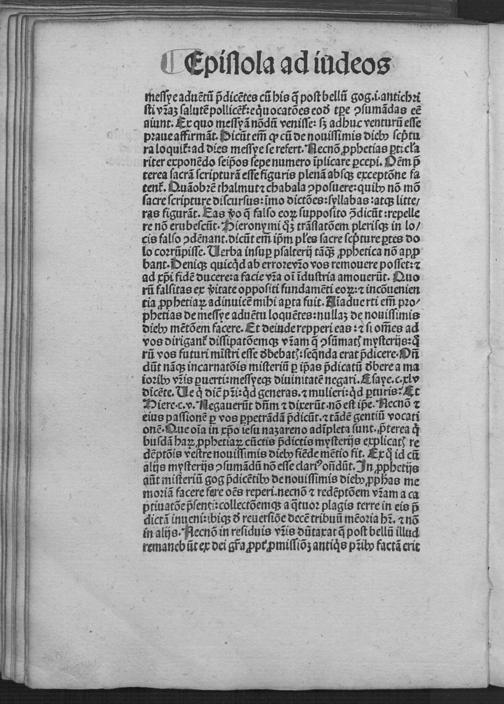 Epistola ad iudeos
messye aduētū p̄dicētes cū his q̄ post bellū gog.i.antichri
sti vr̄az salutē pollicēt̄: e quocatōes eod̄ tpe ꝯsumādas eē
aiunt. Ex quo messyā nōdū venisse: sꝫ adhuc venturū esse
praue affirmāt. Dicūt em̄ ꝙ cū de nouissimis dieb⁹ scp̄tu
ra loquit̄: ad dies messye se refert. Necnō ꝓphetias
riter exponēdo seip̄os sepe numero īplicare ꝑcepi. Dēm p̄
terea sacrā scripturā esse figuris plenā absqꝫ exceptōne fa
tent̄. Quāobrē thalmut ⁊ chabala ꝯposuere: quib⁹ nō mō
sacre scripture discursus: īmo dictōes: syllabas: atqꝫ litte/
ras figurāt. Eas v̄o q̄ falso eoꝝ supposito ꝯdicūt: repelle
re nō erubescūt. Hieronymi qꝫ trāslatōem pleriqꝫ in lo/
cis falso ꝯdēnant. dicūt em̄ ip̄m p̄les sacre scp̄ture ꝑtes do
lo corrūpisse. Uerba insuꝑ psalterij tāqꝫ ꝓphetica nō apꝓ
bant. Deniqꝫ quicqd ab errore vr̄o vos remouere posset: ⁊
ad xp̄i fidē ducere: a facie vr̄a oī īdustria amouerūt. Quo
rū falsitas ex v̄itate oppositi fundamēti eoꝝ: ⁊ incōuenien
tia ꝓphetiaꝝ adinuicē mihi aꝑta fuit. Aiaduerti em̄ pro/
phetias de messye aduētu loquētes: nullaꝫ de nouissimis
dieb⁹ mētōem facere. Et deinde repperi eas: ⁊ si om̄es ad
vos dirigant̄ dissipatōemqꝫ vr̄am q̄ ꝯsumat̄ mysterijs: q̄
rū vos futuri mīstri esse d̄bebat̄: seq̄nda erat p̄dicere. Oñ
dūt nāqꝫ incarnatōis misteriū ꝑ ip̄as p̄dicatū d̄bere a ma
iorib⁹ vr̄is ꝑuerti: messyeqꝫ diuinitatē negari. Esaye.c.xlv
dicēte. Ue q̄ diē pr̄i: qd generas. ⁊ mulieri: qd ꝑturis: Et
Hiere.c.v. Negauerūt dn̄m ⁊ dixerūt. nō est ip̄e. Necnō ⁊
eius passionē ꝑ vos ꝑpetrādā p̄dicūt. ⁊ tādē gentiū vocati
onē. Que oīa in xp̄o iesu nazareno adīpleta sunt. p̄terea q̄
busdā haꝝ ꝓphetiaꝝ cūctis p̄dictis mysterijs explicat̄ re
dēptōis vestre nouissimis dieb⁹ fiēde mētio fit. Ex q̄ id cū
alijs mysterijs ꝯsumādū nō esse clari⁹ on̄dūt. In ꝓphetijs
aūt misteriū gog p̄dicētib⁹ de nouissimis dieb⁹. ꝓphas me
moriā facere fere oēs reperi. necnō ⁊ redēptōem vr̄am a ca
ptiuatōe p̄senti: collectōemqꝫ a q̄tuor plagis terre in eis p̄
dictā inueni: ibiqꝫ d̄ reuersiōe decē tribuū mēoria hr̄. ⁊ nō
in alijs. Necnō in residuis vr̄is dūtaxat q̄ post bellū illud
remanebūt ex dei gr̄a ꝓpt̄ ꝓmissiōꝫ antiq̄s pr̄ib⁹ factā erit